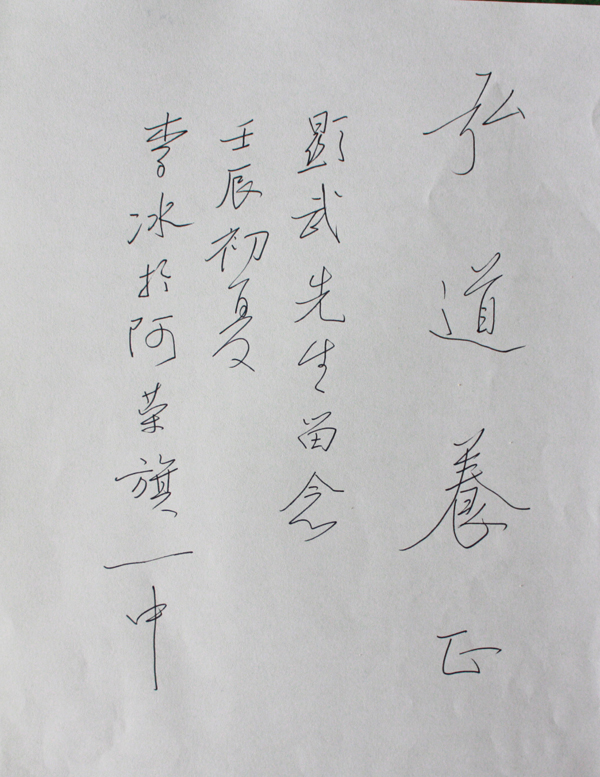 弘道養正
顯武先生留念
壬辰初夏
李冰於阿荣旗一中